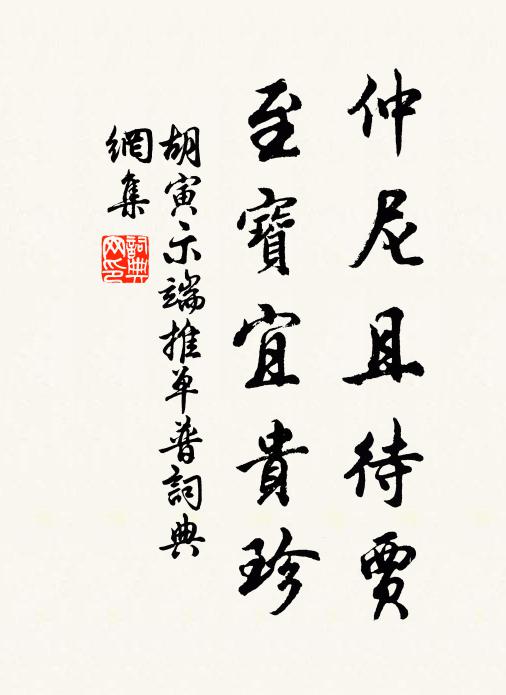 仲尼且待賈
至寶宜貴珍
胡寅示端推单普詞典
網集
詞典
网印